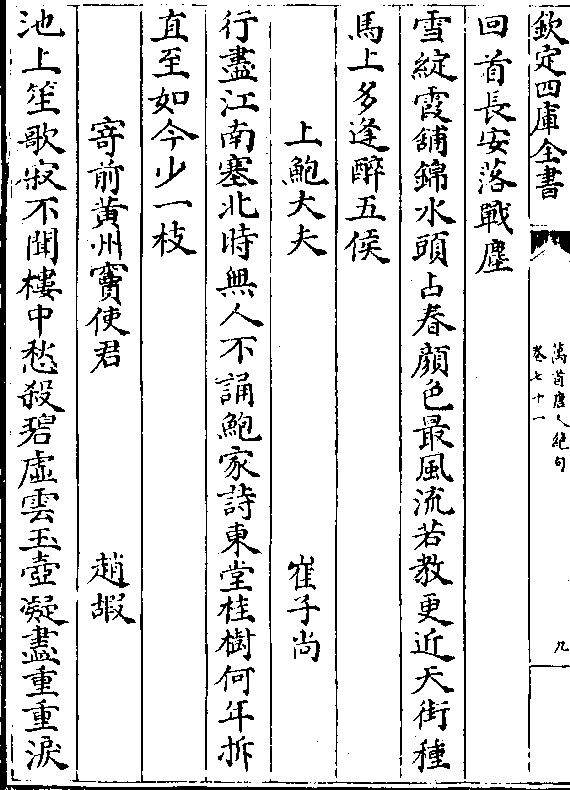 欽定四庫全書
萬首唐人絕句
卷七十一
九
回首長安落戰塵
雪綻霞舖錦水頭占春顔色最風流若教更近天街種
馬上多逢醉五侯
上鮑大夫 崔子尚
行盡江南塞北時無人不誦鮑家詩東堂桂樹何年折
直至如今少一枝
寄前黄州竇使君 趙嘏
池上笙歌寂不聞樓中愁殺碧虛雲玉壺凝盡重重淚